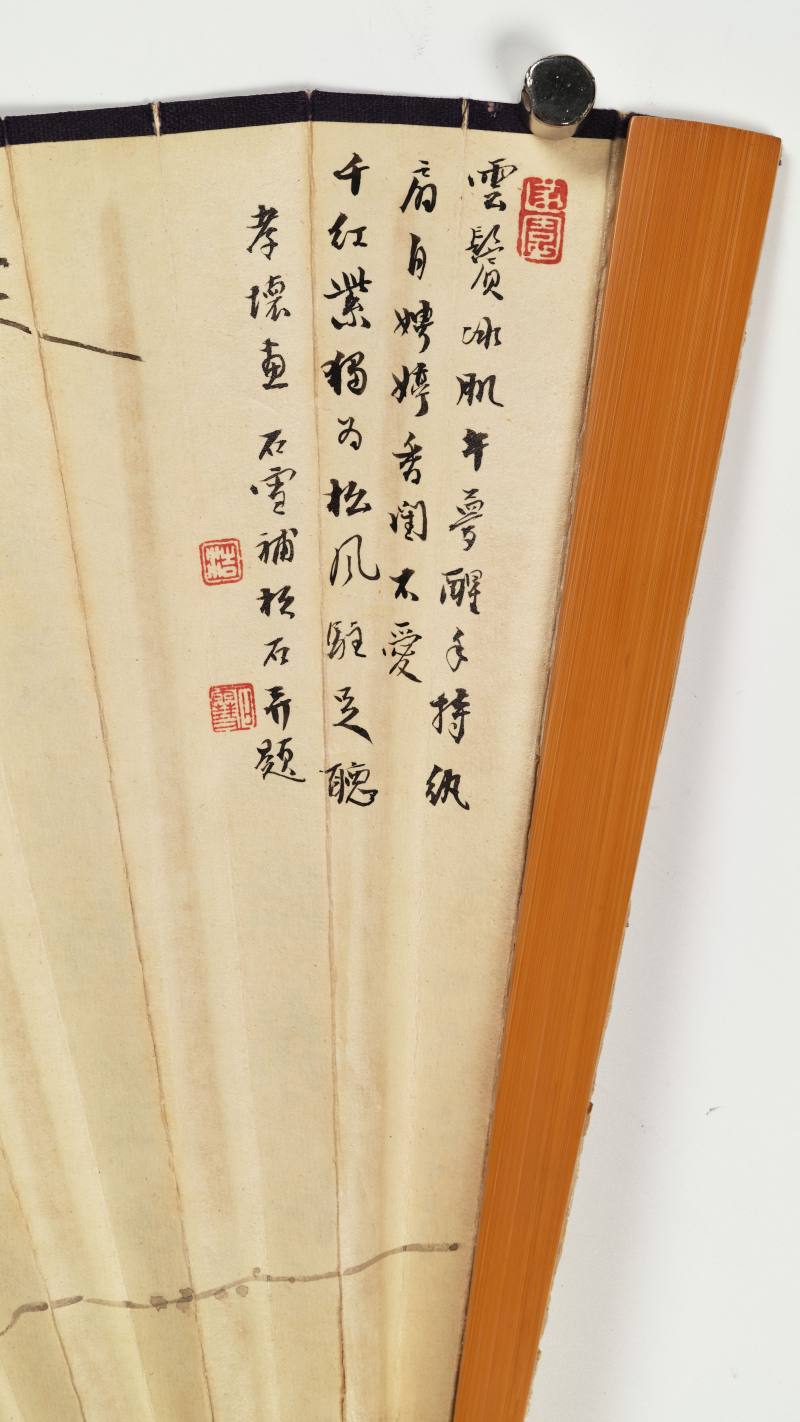 雲鬢冰肌午夢醒手持紈
扇自娉婷香閨不愛
千紅紫獨為松風駐足聽
孝壞畫 石雪補松石并題
石雪